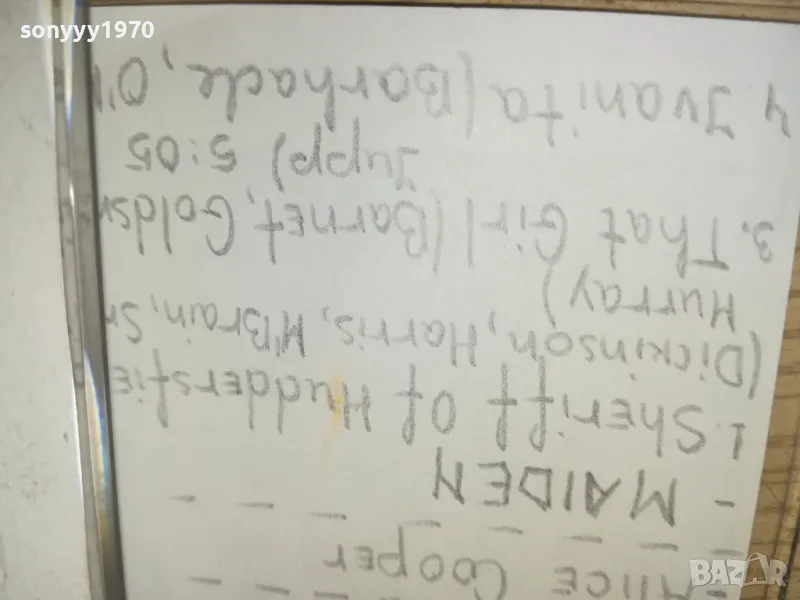 sonyyy1970
Alice Cooper
- MAIDEN
1. Sheriff Of Huddersfie
(Dickinson, Harris, M'Brain, Sm
Murray)
3. That Girl (Barnet, Goldsm
Jupp) 5:05
4. Juanita (Barhade, O'
BAZAR